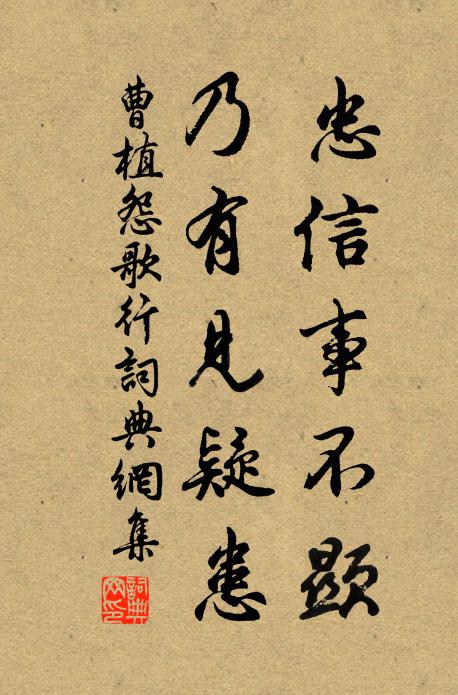 忠信事不顯
乃有見疑患
曹植怨歌行詞典網集
詞典
网印